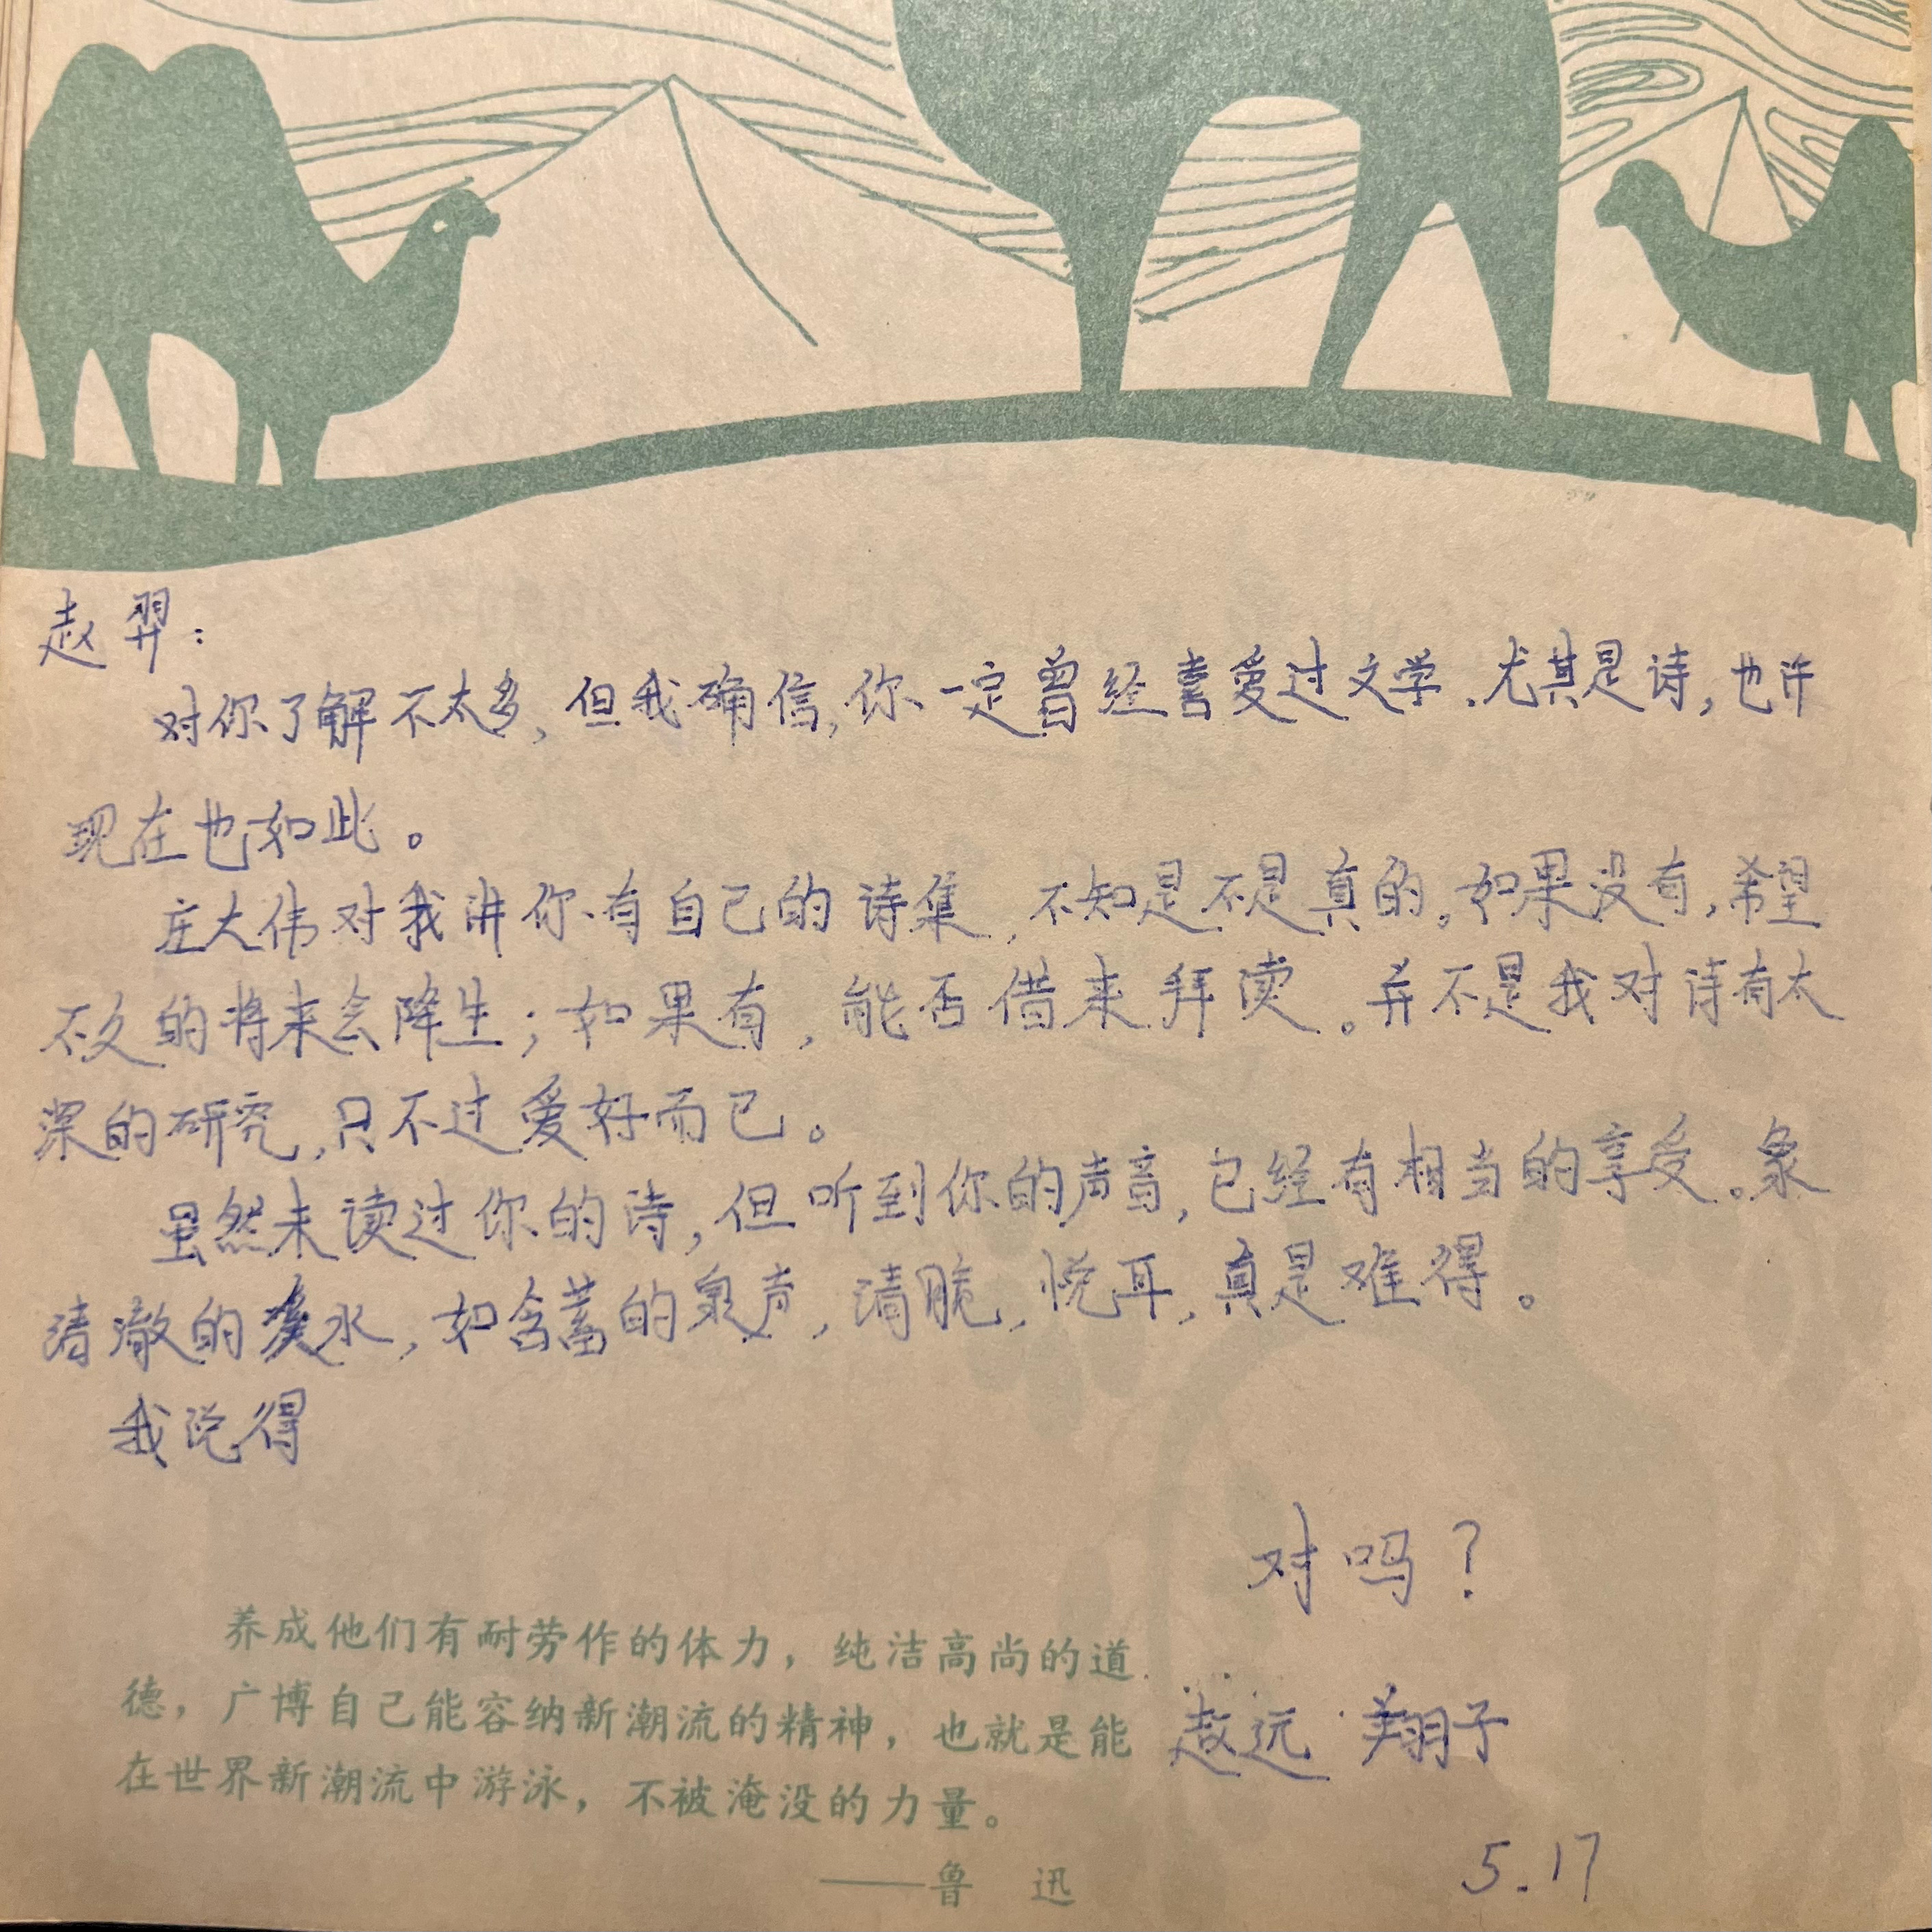 赵羿：
对你了解不太多，但我确信，你一定曾经喜爱过文学．尤其是诗，也许
现在也如此。
庄大伟对我讲你有自己的诗集，不知是不是真的。如果没有，希望
不久的将来会降生；如果有，能否借来拜读。并不是我对诗有太
深的研究，只不过爱好而已。
虽然未读过你的诗，但听到你的声音，已经有相当的享受。象
清澈的溪水，如含蓄的泉声，清脆，悦耳，真是难得。
我说得
对吗？
养成他们有耐劳作的体力，纯洁高尚的道
德，广博自己能容纳新潮流的精神，也就是能
在世界新潮流中游泳，不被淹没的力量。
——鲁 迅
赵远 翔子
5.17